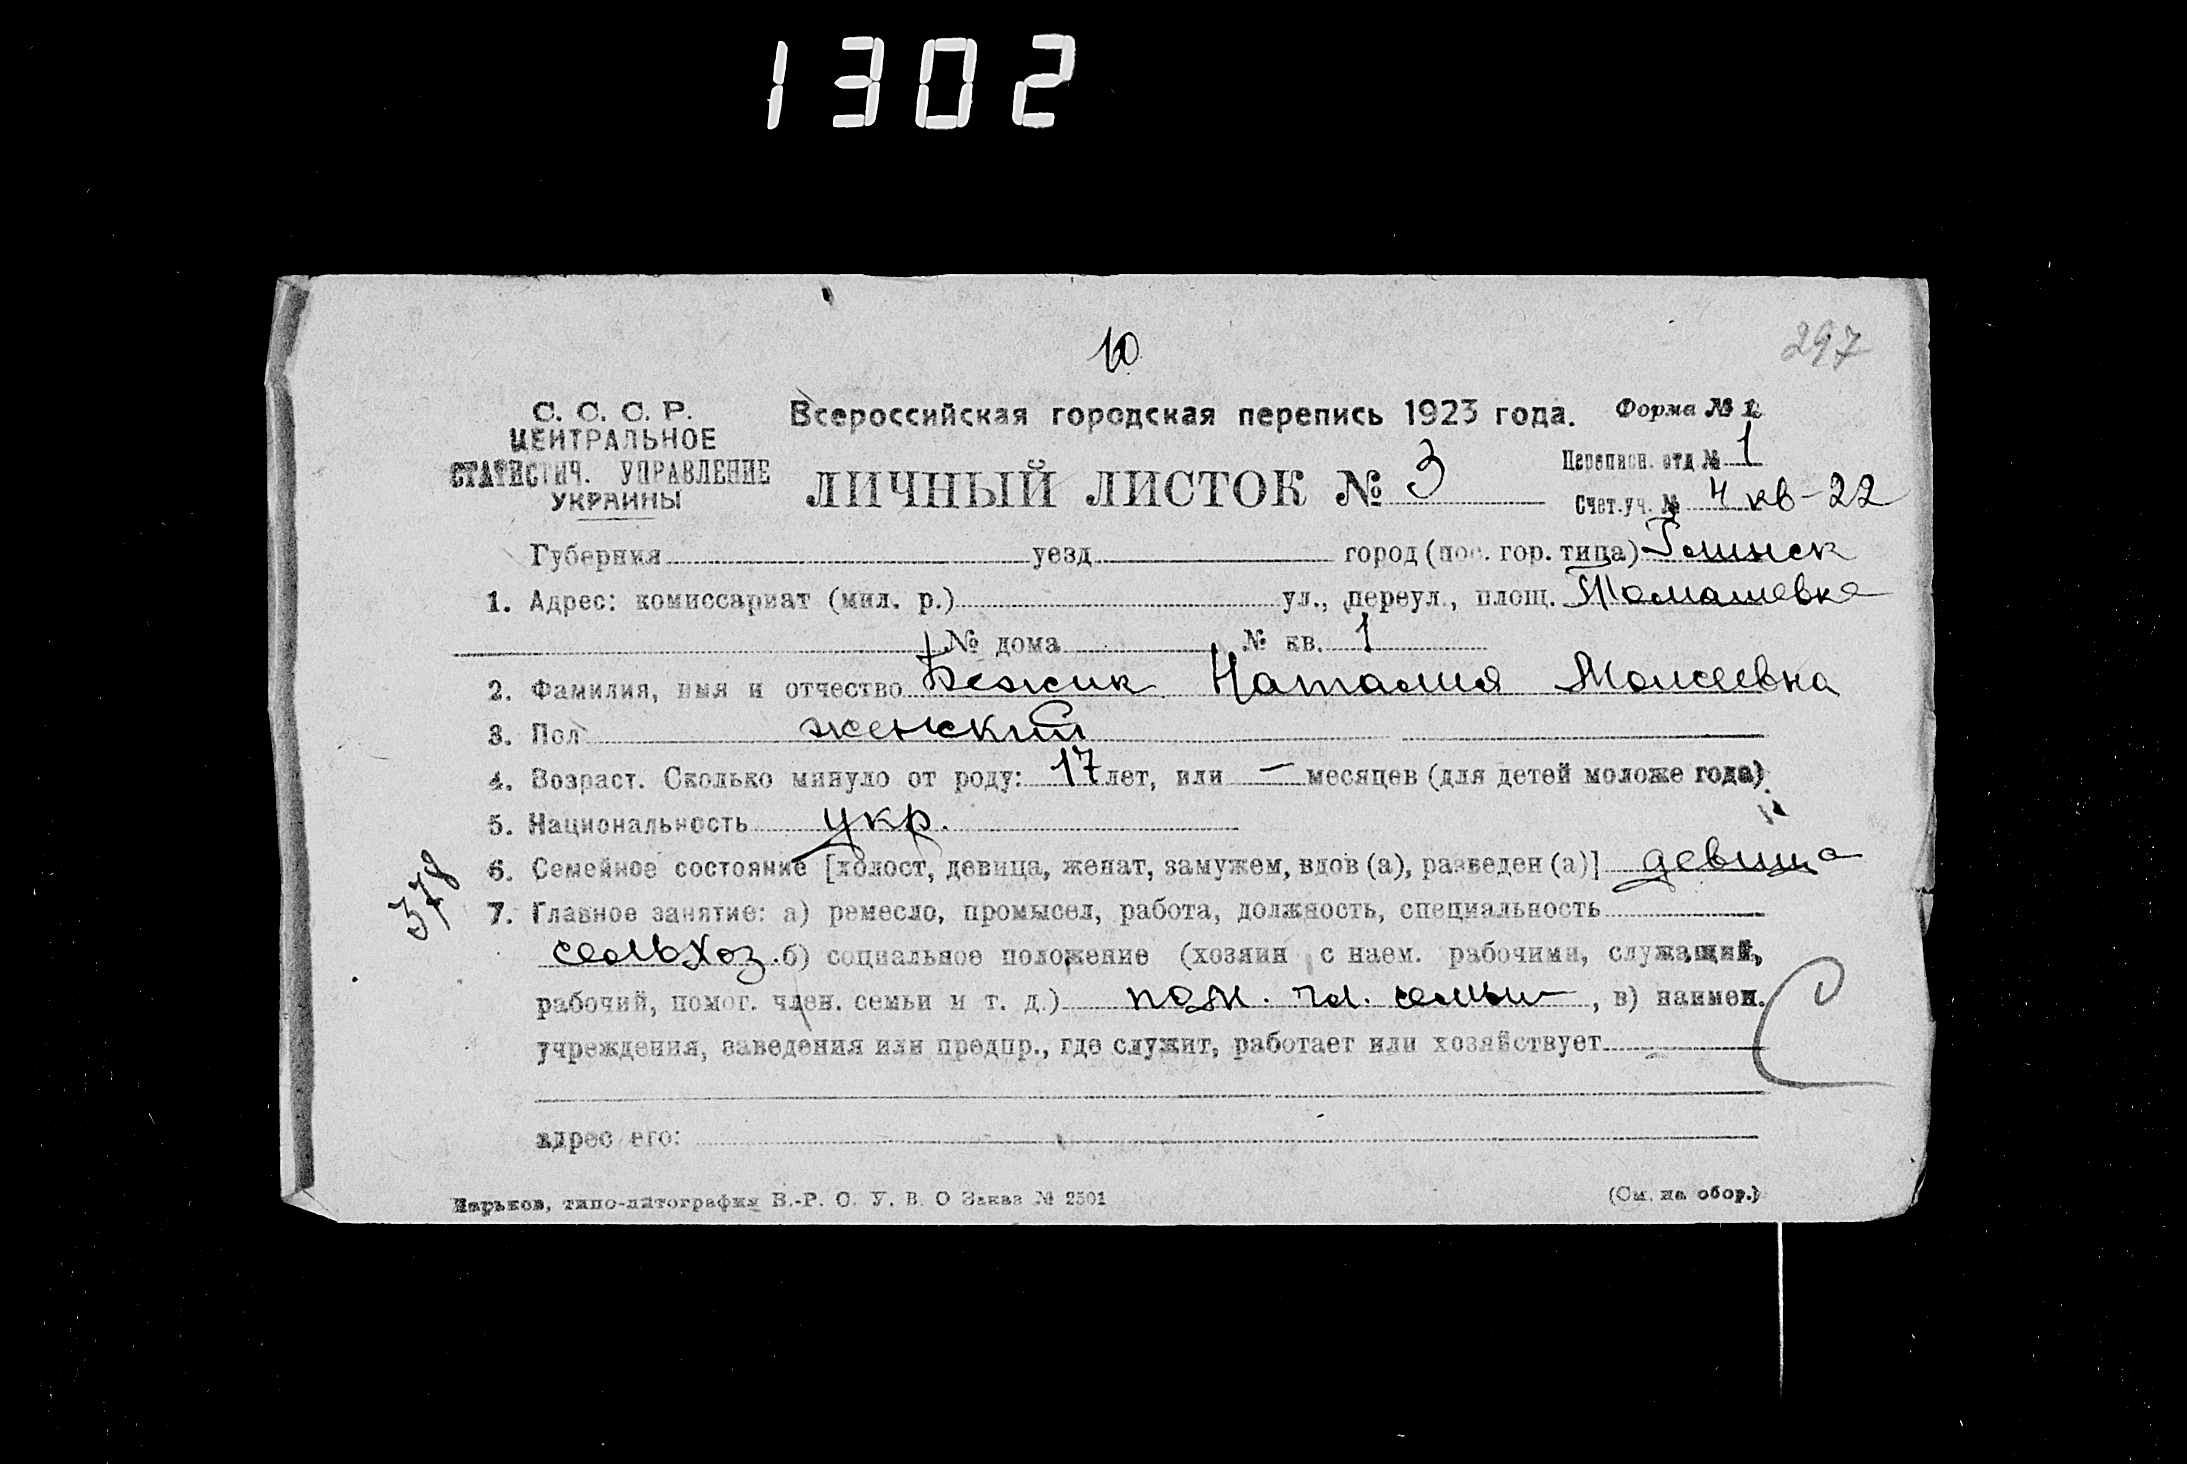 1302
10
297
С. С. С. Р.
ЦЕНТРАЛЬНОЕ
СТАТИСТИЧ. УПРАВЛЕНИЕ
УКРАИНЫ
Всероссийская городская перепись 1923 года.
Форма № 1
ЛИЧНЫЙ ЛИСТОК № 3
Переписн. отд № 1
Счет.уч. № 4 кв-22
Губерния уезд город (пос. гор. типа) Глинск
1. Адрес: комиссариат (мил. р.) ул., переул., площ. Томашевка
№ дома № кв. 1
2. Фамилия, имя и отчество Бежик Наталия Моисеевна
3. Пол женский
4. Возраст. Сколько минуло от роду: 17 лет, или — месяцев (для детей моложе года)
5. Национальность укр.
6. Семейное состояние [холост, девица, женат, замужем, вдов (а), разведен (а)] девица
378
7. Главное занятие: а) ремесло, промысел, работа, должность, специальность
сельхоз. б) социальное положение (хозяин с наем. рабочими, служащий,
рабочий, помог. член. семьи и т. д.) пом. чл. семьи, в) наимен.
учреждения, заведения или предпр., где служит, работает или хозяйствует
адрес его:
Харьков, типо-литография В.-Р. С. У. В. О Заказ № 2501
(См. на обор.)